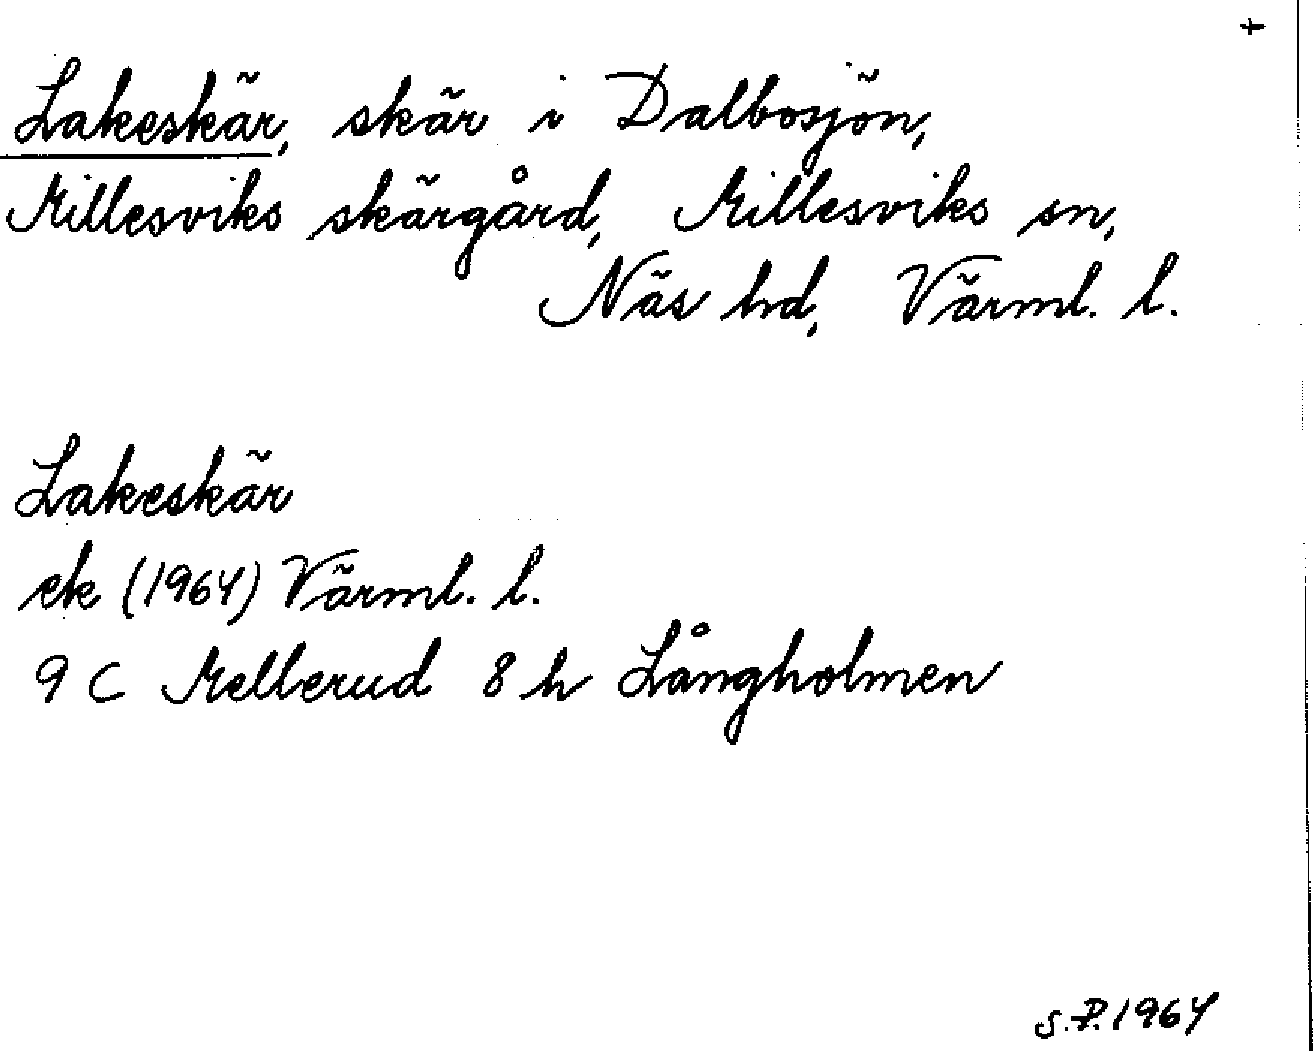 +
Lakeskär, skär i Dalbosjön,
Millesviks skärgård, Millesviks sn,
Näs hd, Värml. l.
Lakeskär
ek (1964) Värml. l.
9 C Mellerud 8 h Långholmen
S.P. 1964